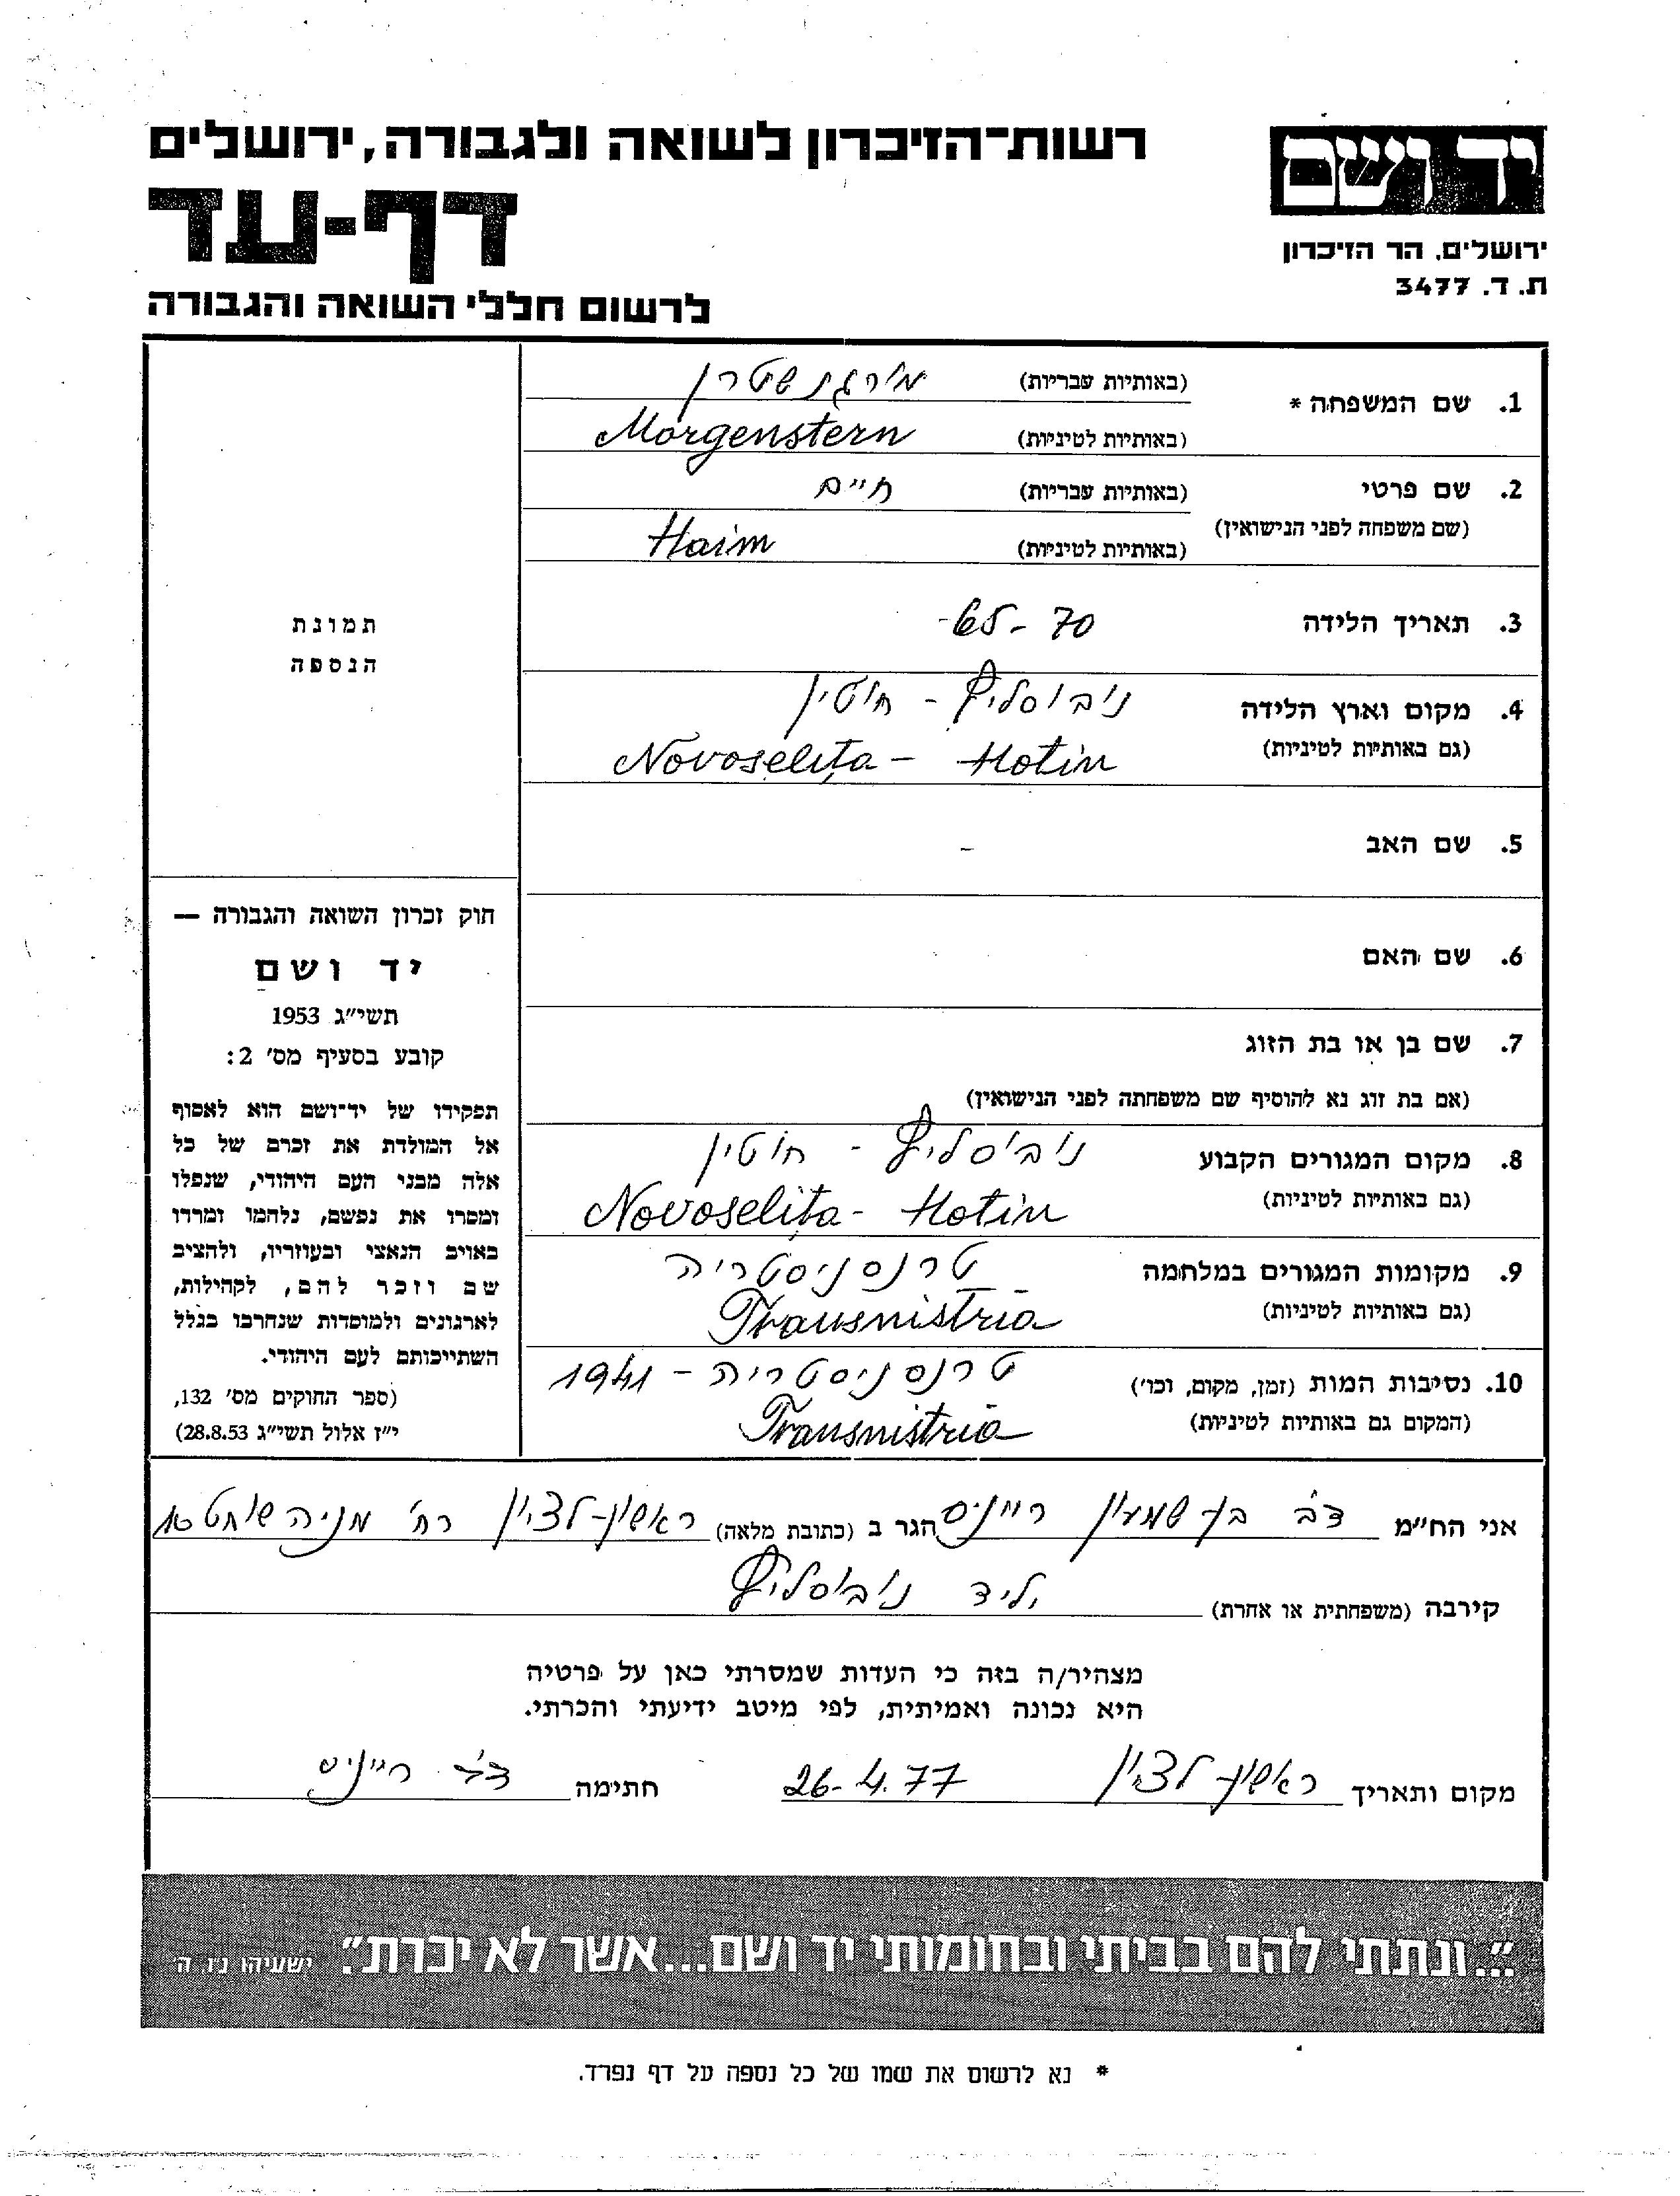 יד ושם
ירושלים. הר הזיכרון
ת. ד. 3477
רשות-הזיכרון לשואה ולגבורה, ירושלים
דף-עד
לרשום חללי השואה והגבורה
1. שם המשפחה * (באותיות עבריות) מורגנשטרן
(באותיות לטיניות) Morgenstern
2. שם פרטי (באותיות עבריות) חיים
(שם משפחה לפני הנישואין)
(באותיות לטיניות) Haim
3. תאריך הלידה 65-70
4. מקום וארץ הלידה נובוסליץ - חוטין
(גם באותיות לטיניות) Novoseliţa - Hotin
5. שם האב -
6. שם האם
7. שם בן או בת הזוג
(אם בת זוג נא להוסיף שם משפחתה לפני הנישואין)
8. מקום המגורים הקבוע נובוסליץ - חוטין
(גם באותיות לטיניות) Novoseliţa - Hotin
9. מקומות המגורים במלחמה טרנסניסטריה
(גם באותיות לטיניות) Transnistria
10. נסיבות המות (זמן, מקום, וכו') טרנסניסטריה - 1941
(המקום גם באותיות לטיניות) Transnistria
תמונת
הנספה
חוק זכרון השואה והגבורה —
יד ושם
תשי"ג 1953
קובע בסעיף מס' 2:
תפקידו של יד-ושם הוא לאסוף
אל המולדת את זכרם של כל
אלה מבני העם היהודי, שנפלו
ומסרו את נפשם, נלחמו ומרדו
באויב הנאצי ובעוזריו, ולהציב
שם וזכר להם, לקהילות,
לארגונים ולמוסדות שנחרבו בגלל
השתייכותם לעם היהודי.
(ספר החוקים מס' 132,
י"ז אלול תשי"ג 28.8.53)
אני הח"מ דב בן שמעון רייניס הגר ב (כתובת מלאה) ראשון-לציון רח' מניה שוחט 10
קירבה (משפחתית או אחרת) יליד נובוסליץ
מצהיר/ה בזה כי העדות שמסרתי כאן על פרטיה
היא נכונה ואמיתית, לפי מיטב ידיעתי והכרתי.
מקום ותאריך ראשון-לציון 26-4.77 חתימה דב רייניס
"...ונתתי להם בביתי ובחומותי יד ושם...אשר לא יכרת". ישעיהו נ"ו ה'
* נא לרשום את שמו של כל נספה על דף נפרד.